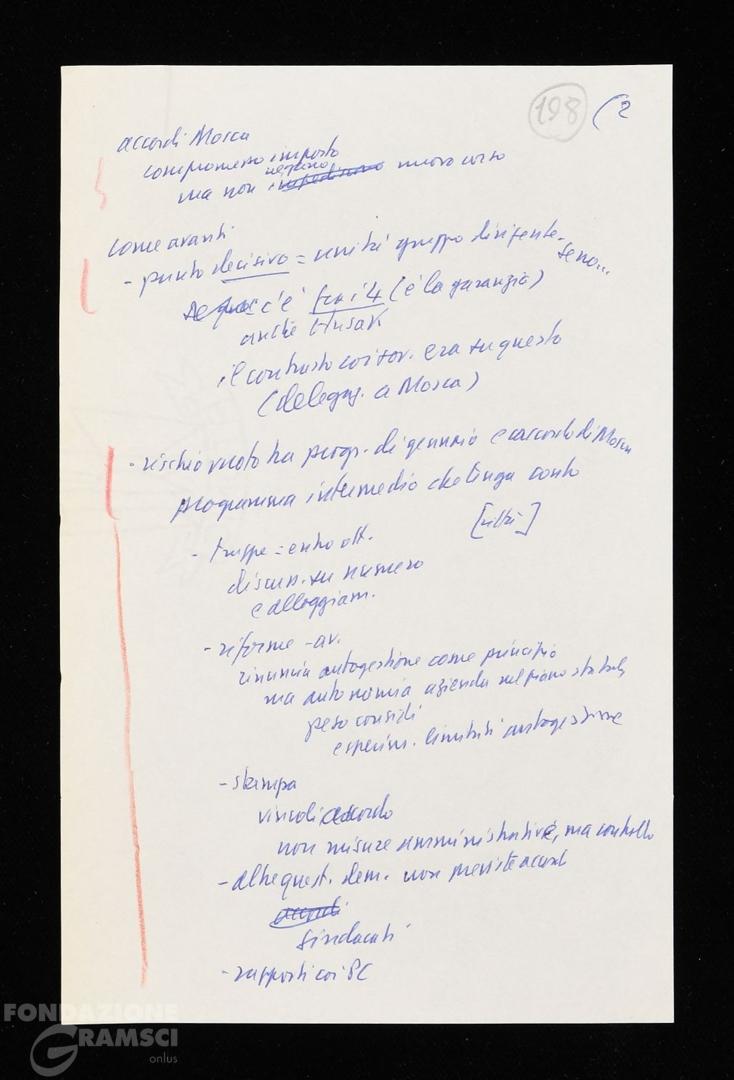 198 (2
accordi Mosca
compromesso imposto
negano
ma non impediscono nuovo corso
Come avanti
- punto decisivo = unità gruppo dirigente.
se no...
c'è fra i 4 (è la garanzia)
anche Husak
il contrasto coi sov. era su questo
(delegaz. a Mosca)
- rischio vuoto tra progr. di gennaio e accordo di Mosca
programma intermedio che tenga conto
- truppe = entro ott.
discuss. su numero
e alloggiam.
- riforme - av.
rinuncia autogestione come principio
ma autonomia aziende nel piano statale
peso consigli
esperim. limitati autogestione
- stampa
vincoli accordo
non misure amministrative, ma controllo
- altre quest. dem. non previste accordi
accordi
sindacati
- rapporti coi PC
FONDAZIONE
GRAMSCI
onlus